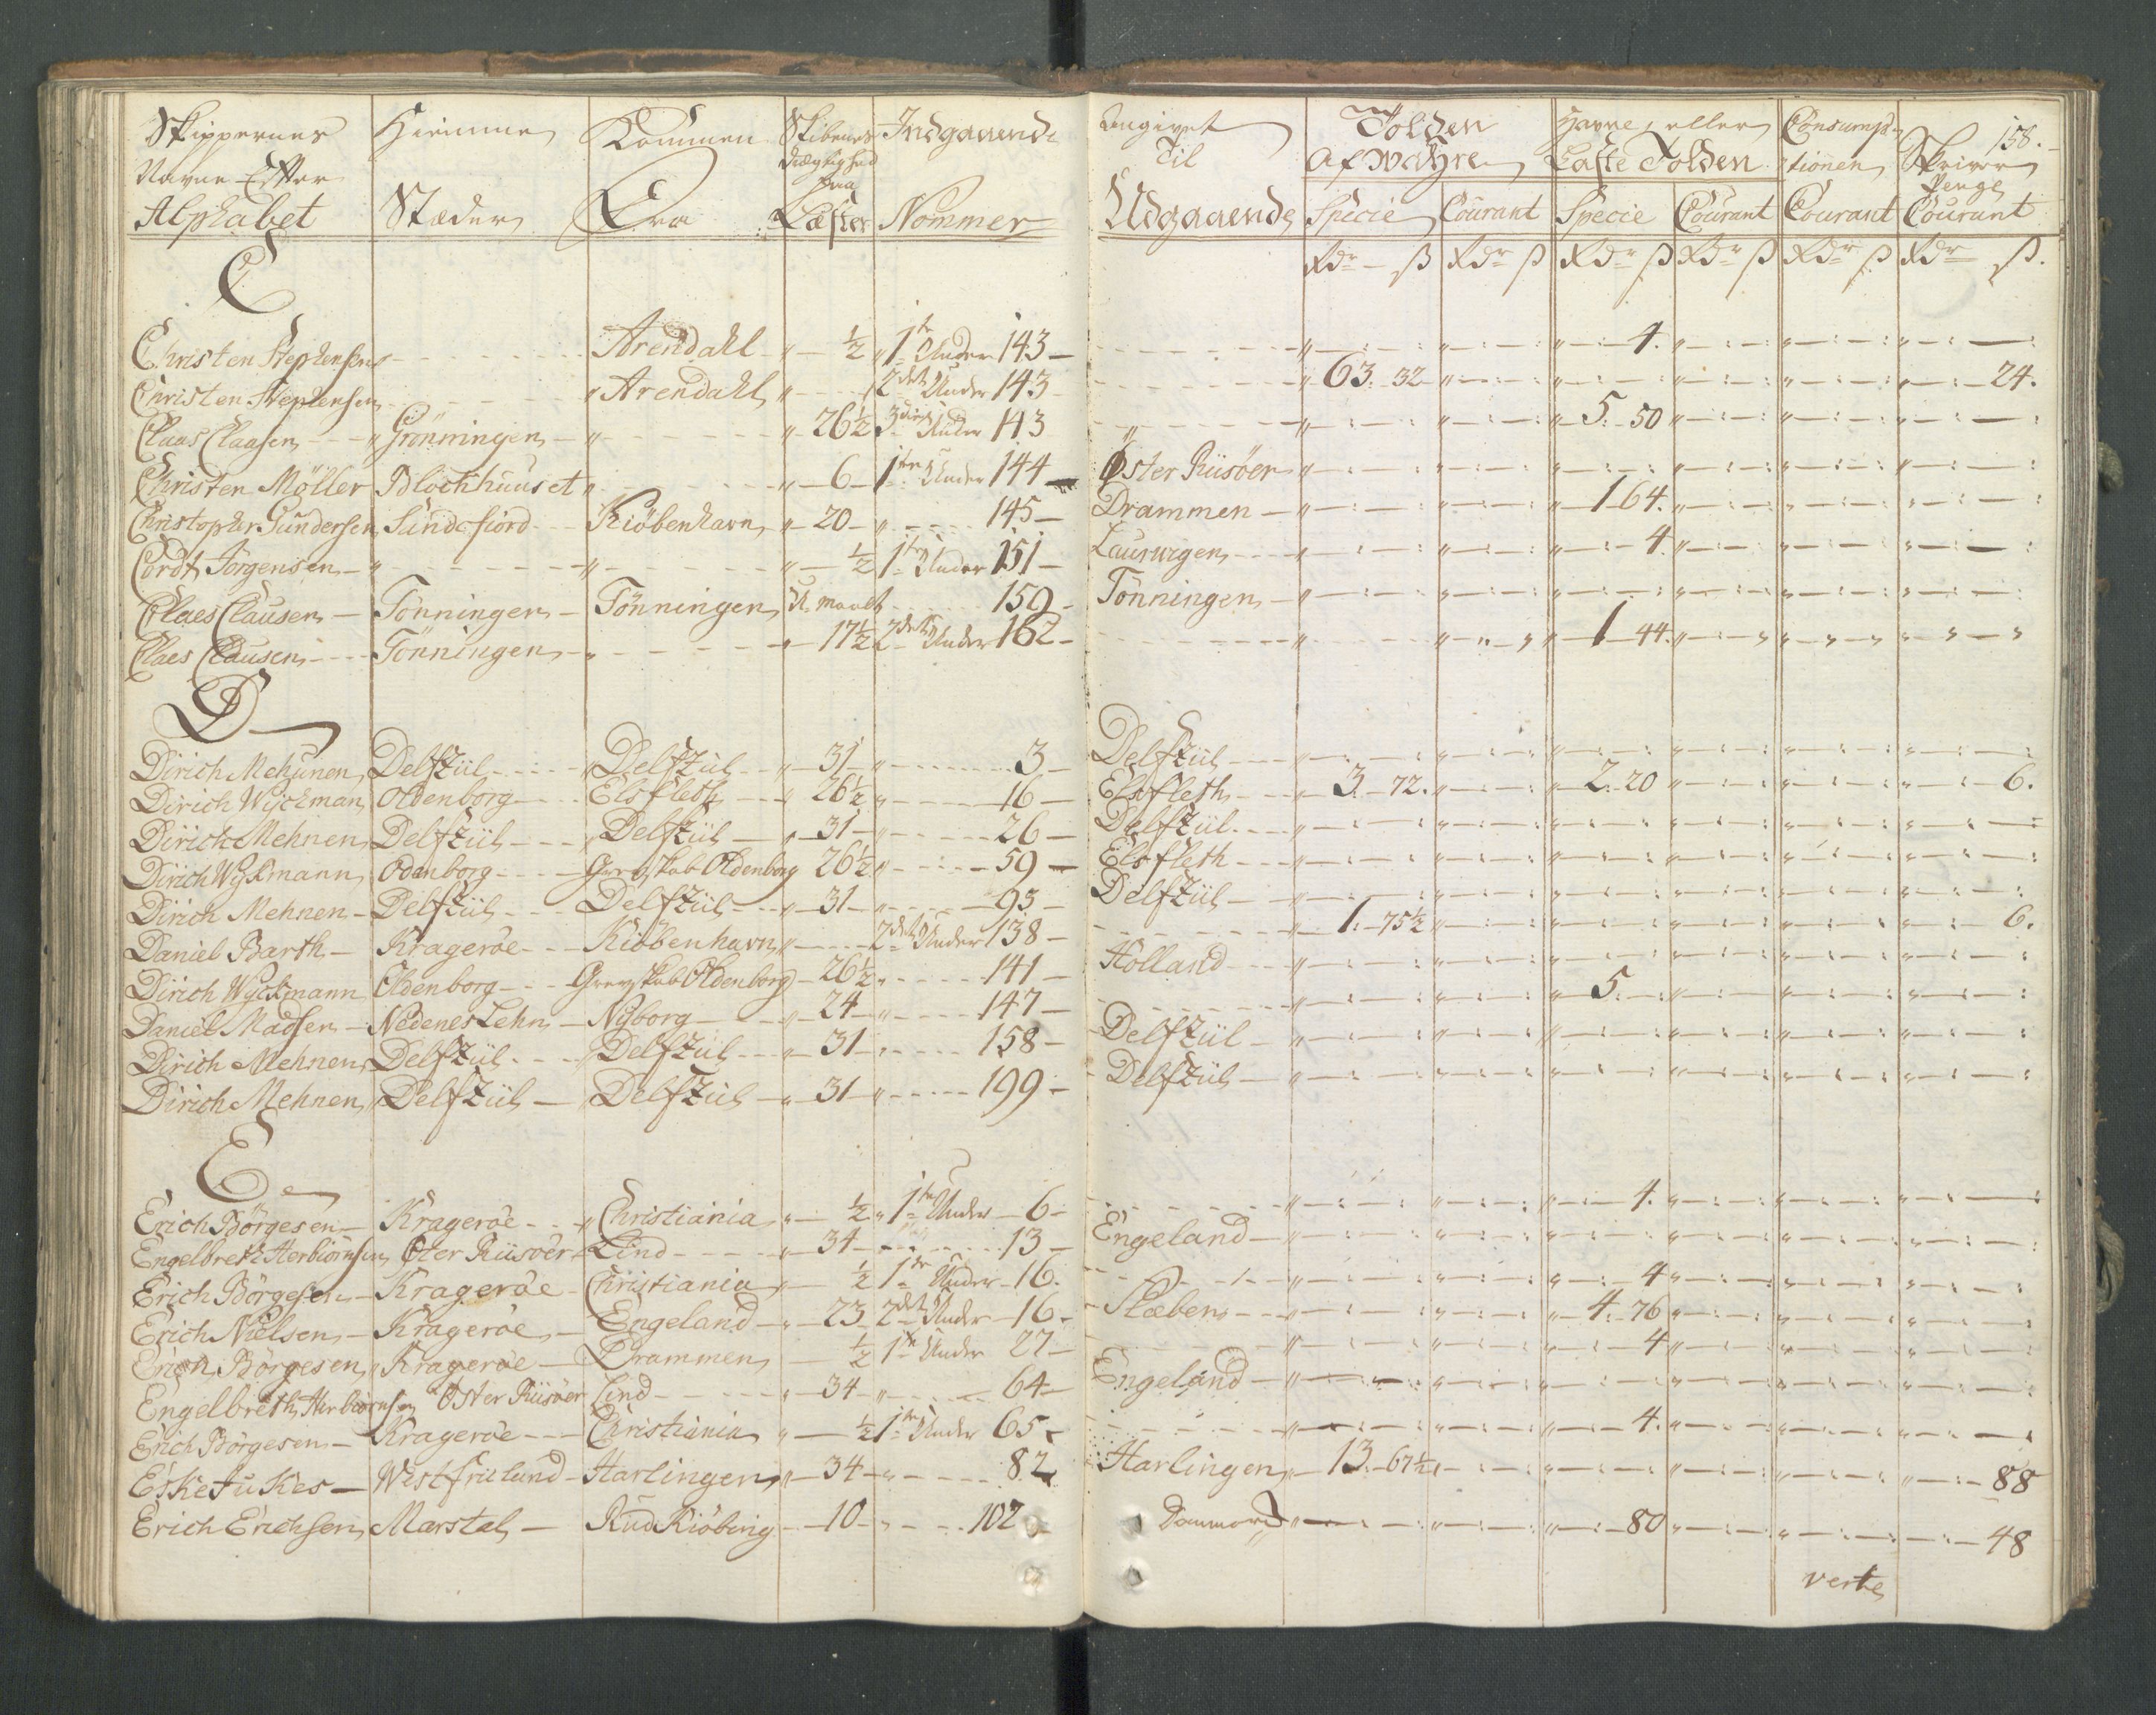 Skippernes Navne Efter Alphabet | Hiemme Stæder | Kommen Fra | Skibenes Drægtighed paa Læster | Indgaaende Nommer | Angivet Til Udgaaende | Tolden af Wahre Specie Courant | Havne, eller Læste Tolden Specie Courant | Consumptionen Courant | Skriver Penge Courant | 158.
Rdr ß | Rdr ß | Rdr ß | Rdr ß | Rdr ß | Rdr ß.
C
Christen Stephensen - - - Arendahl - " - ½ " 1te Under 143 - 4.
Christen Stephensen - - - " Arendahl " - 2det Under 143 - " 63. 32 - 24.
Claas Claasen - - " Grönningen - " - " 26½ 3die Under 143 - " - 5. 50
Christen Möller Blochhuuset " - " 6 - 1te Under 144 - Øster Riisöer
Christopher Gundersen Sundefiord - Kiöbenhavn " 20 - " - 145 - Drammen - 1 64.
Cordt Jörgensen - " - " - " ½ 1te Under 151 - Laurwigen - 4.
Claes Clausen - Tönningen - Tönningen U. maalt - 159 - Tönningen
Claes Clausen - Tönningen - " - 17½ 2det Under 162 - 1 44.
D
Dirich Mehünen Delfziil - " Delfziil - " 31 - " - 3 - Delfziil
Dirich Wyckman Oldenborg - Elsfleth - " 26½ " - 16 - Elsfleth - 3. 72. - 2. 20 - 6.
Dirich Mehnen Delfziil - " Delfziil - " 31 - " - 26 - Delfziil
Dirich Wyckmann Odenborg - Grevskab Oldenborg 26½ " - 59 - Elsfleth
Dirich Mehnen - Delfziil - Delfziil - " 31 - " - 93 - Delfziil
Daniel Barth - Krageröe - Kiöbenhavn " - 2det Under 138 - 1. 75½ - 6.
Dirich Wyckmann Oldenborg - Grevskab Oldenborg - 26½ " - 141 - Holland
Daniel Madsen - Nedenes Lehn - Nyborg - " 24 - " - 147 - 5.
Dirich Mehnen Delfziil - Delfziil - " 31 - " - 158 - Delfziil
Dirich Mehnen Delfziil - Delfziil - " 31 - " - 199 - Delfziil
E
Erich Börgesen - Krageröe - " Christiania " ½ " 1te Under - 6 - 4.
Engelbreth Herbiörnsen Öster Riisöer - Lind - " 34 - 13 - Engeland
Erich Börgesen - Krageröe - Christiania - ½ 1te Under - 16. - 4
Erich Nielsen - Krageröe - Engeland - " 23 2det Under - 16 - Flæben - 4. 76
Erich Börgesen " Krageröe - Drammen - ½ 1te Under 27 - 4
Engelbreth Herbiörnsen Öster Riisöer Lind - " 34 - " - 64 - Engeland
Erich Börgesen - Krageröe - Christiania " - ½ 1te Under 65 - 4.
Eske Jukes - Westfriisland - Harlingen " 34 - " - 82 - Harlingen - 13. 67½ - 88
Erich Erichsen Marstal - Rudkiöbing - 10 - " - 102 - Danmark - 80 - 48
verte